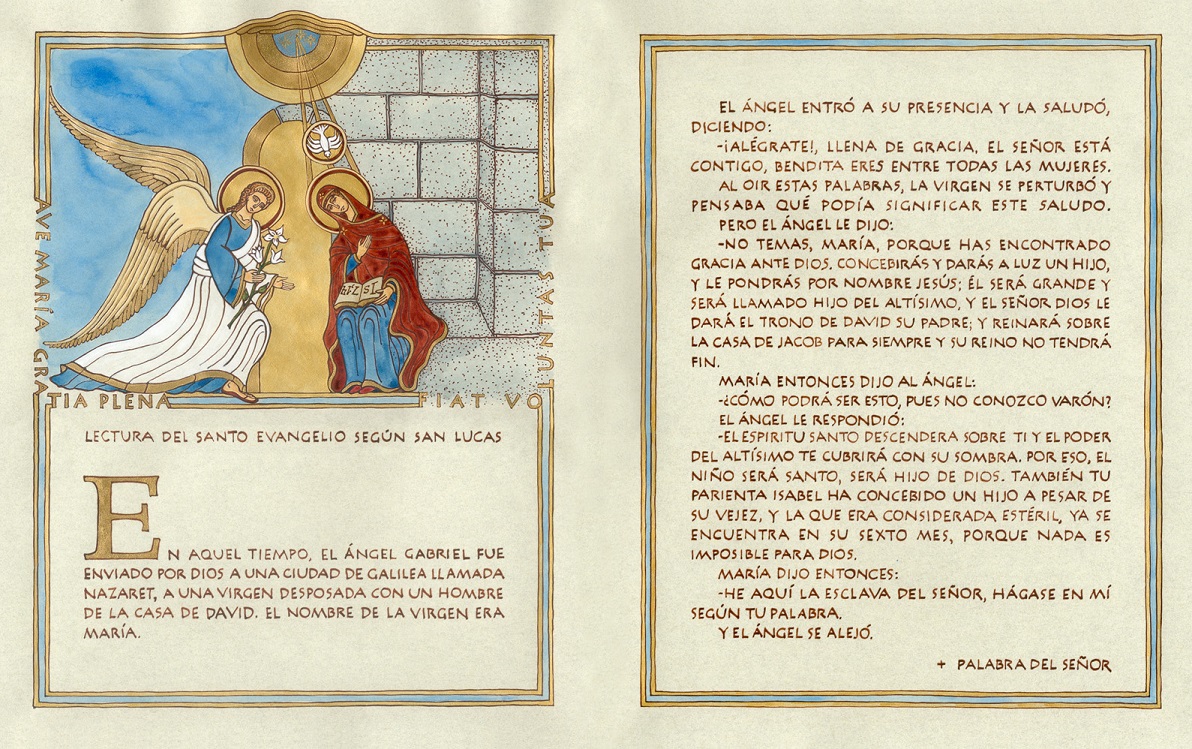 AVE MARÍA GRATIA PLENA
FIAT VOLUNTAS TUA
LECTURA DEL SANTO EVANGELIO SEGÚN SAN LUCAS
EN AQUEL TIEMPO, EL ÁNGEL GABRIEL FUE
ENVIADO POR DIOS A UNA CIUDAD DE GALILEA LLAMADA
NAZARET, A UNA VIRGEN DESPOSADA CON UN HOMBRE
DE LA CASA DE DAVID. EL NOMBRE DE LA VIRGEN ERA
MARÍA.
EL ÁNGEL ENTRÓ A SU PRESENCIA Y LA SALUDÓ,
DICIENDO:
-¡ALÉGRATE!, LLENA DE GRACIA, EL SEÑOR ESTÁ
CONTIGO, BENDITA ERES ENTRE TODAS LAS MUJERES.
AL OIR ESTAS PALABRAS, LA VIRGEN SE PERTURBÓ Y
PENSABA QUÉ PODÍA SIGNIFICAR ESTE SALUDO.
PERO EL ÁNGEL LE DIJO:
-NO TEMAS, MARÍA, PORQUE HAS ENCONTRADO
GRACIA ANTE DIOS. CONCEBIRÁS Y DARÁS A LUZ UN HIJO,
Y LE PONDRÁS POR NOMBRE JESÚS; ÉL SERÁ GRANDE Y
SERÁ LLAMADO HIJO DEL ALTÍSIMO, Y EL SEÑOR DIOS LE
DARÁ EL TRONO DE DAVID SU PADRE; Y REINARÁ SOBRE
LA CASA DE JACOB PARA SIEMPRE Y SU REINO NO TENDRÁ
FIN.
MARÍA ENTONCES DIJO AL ÁNGEL:
-¿CÓMO PODRÁ SER ESTO, PUES NO CONOZCO VARÓN?
EL ÁNGEL LE RESPONDIÓ:
-EL ESPIRITU SANTO DESCENDERA SOBRE TI Y EL PODER
DEL ALTÍSIMO TE CUBRIRÁ CON SU SOMBRA. POR ESO, EL
NIÑO SERÁ SANTO, SERÁ HIJO DE DIOS. TAMBIÉN TU
PARIENTA ISABEL HA CONCEBIDO UN HIJO A PESAR DE
SU VEJEZ, Y LA QUE ERA CONSIDERADA ESTÉRIL, YA SE
ENCUENTRA EN SU SEXTO MES, PORQUE NADA ES
IMPOSIBLE PARA DIOS.
MARÍA DIJO ENTONCES:
-HE AQUÍ LA ESCLAVA DEL SEÑOR, HÁGASE EN MÍ
SEGÚN TU PALABRA.
Y EL ÁNGEL SE ALEJÓ.
+ PALABRA DEL SEÑOR